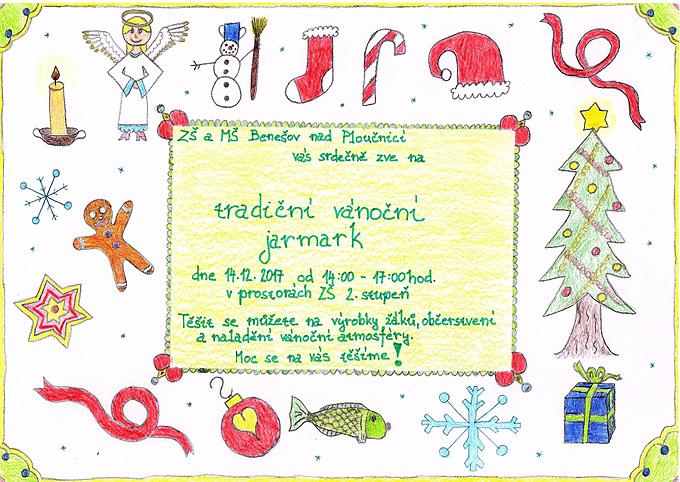 ZŠ a MŠ Benešov nad Ploučnicí
vás srdečně zve na
tradiční vánoční
jarmark
dne 14.12.2017 od 14:00 - 17:00 hod.
v prostorách ZŠ 2. stupeň
Těšit se můžete na výrobky žáků, občerstvení
a naladění vánoční atmosféry.
Moc se na vás těšíme!